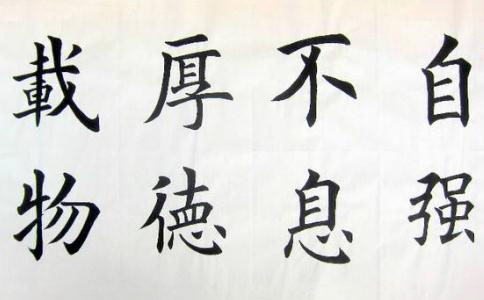 自强
不息
厚徳
載物